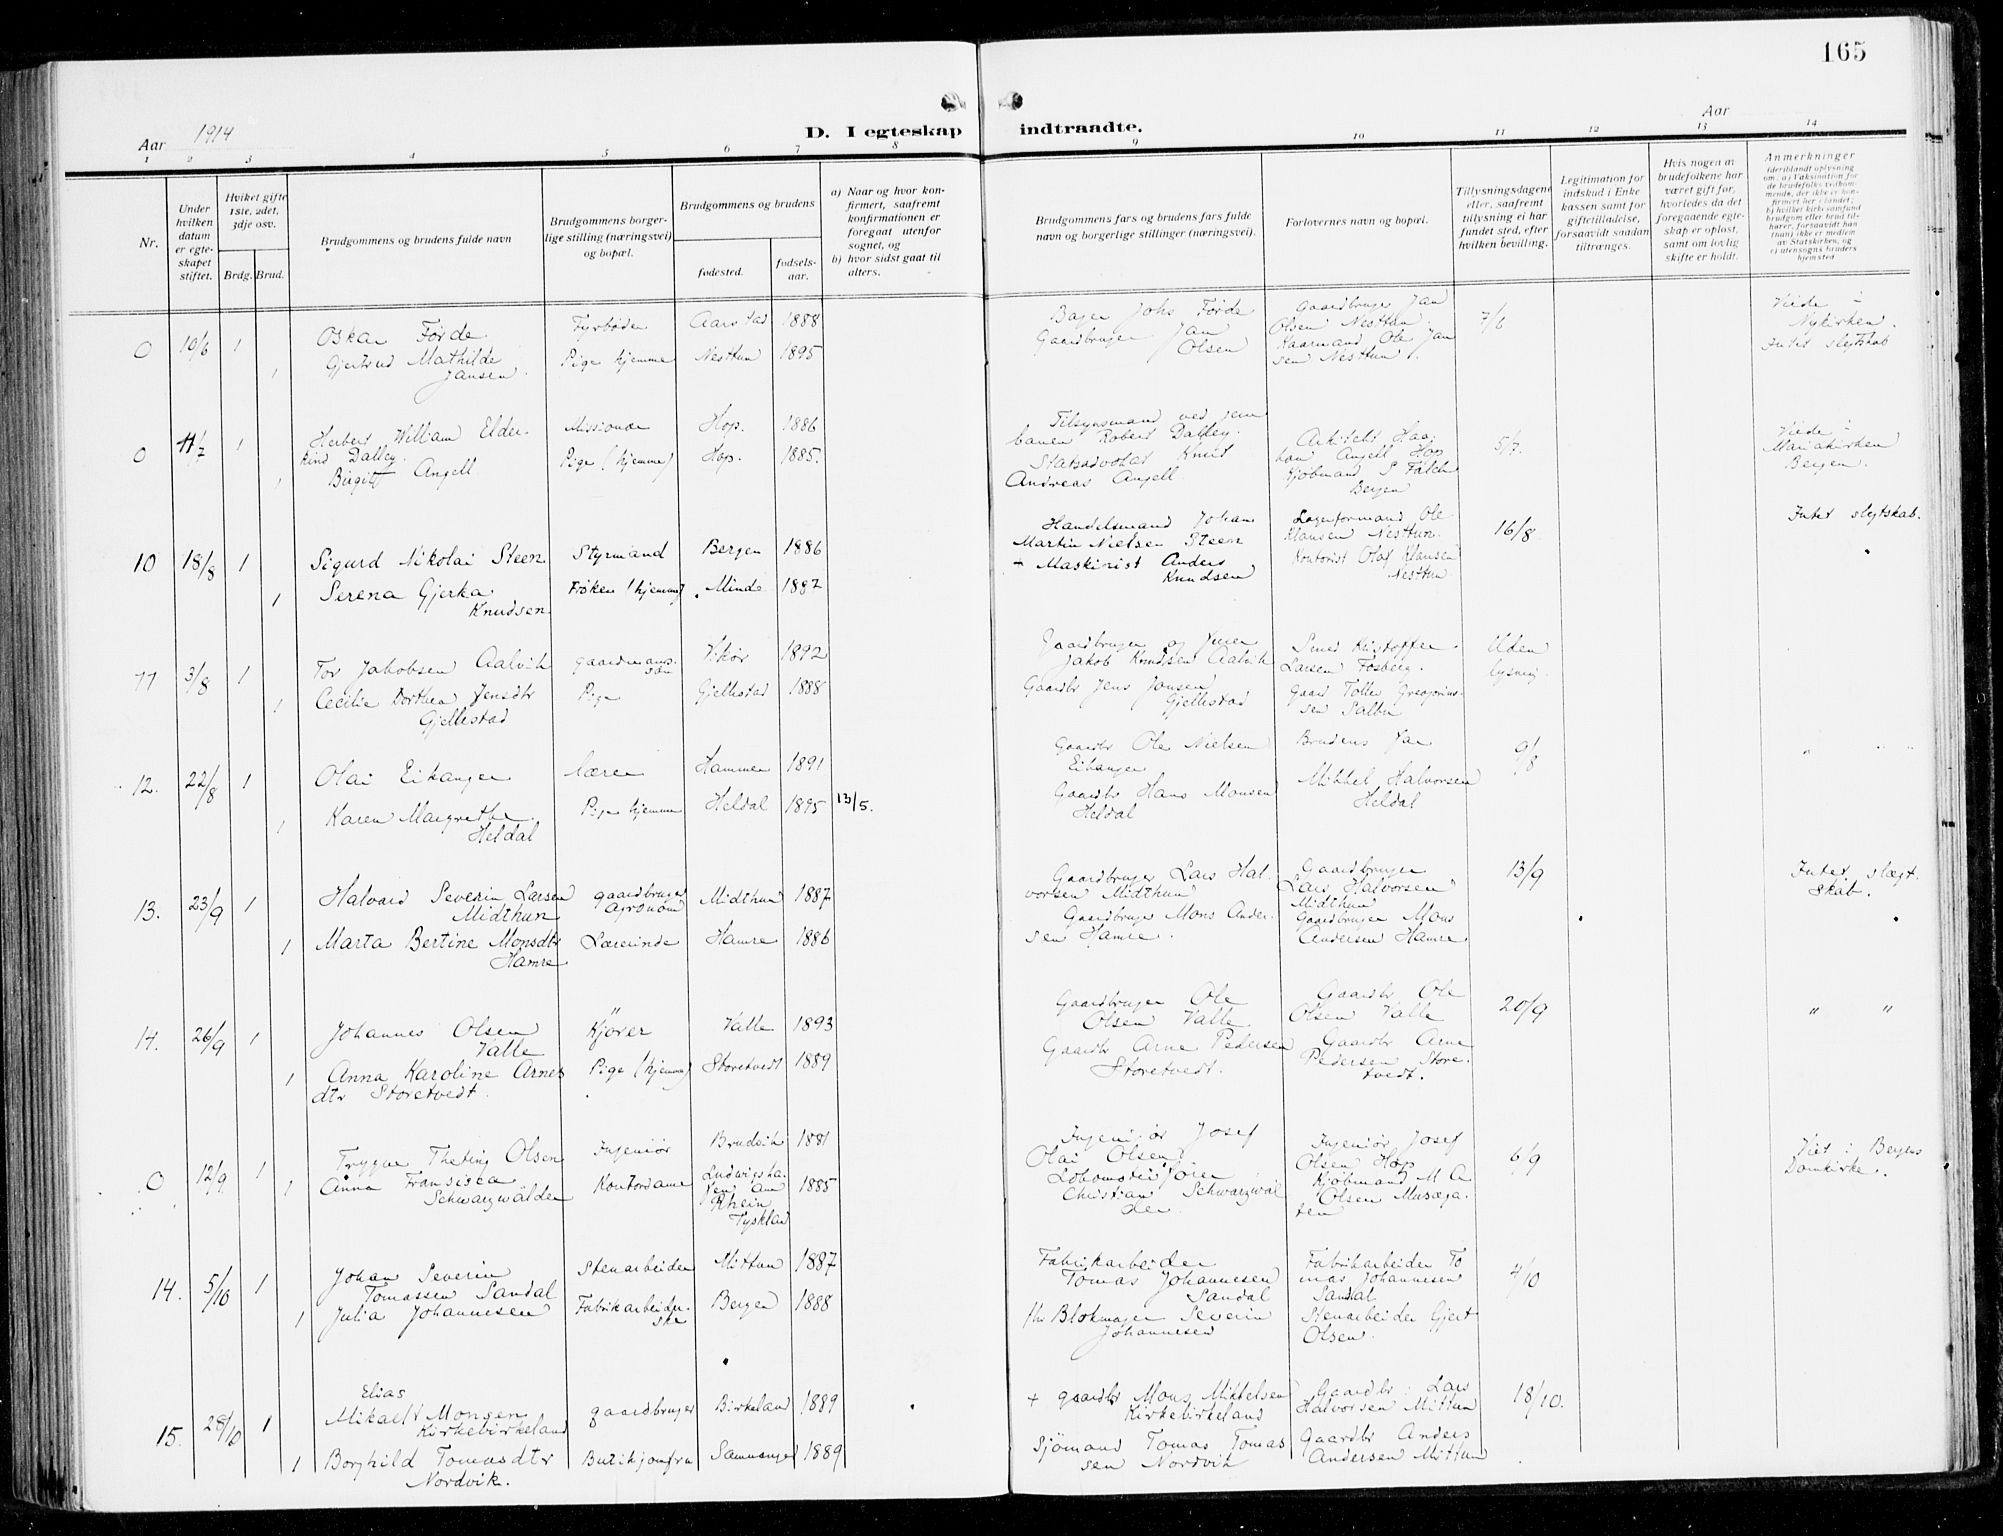 165
Aar 1914
D. I egteskap indtraadte.
Aar
1 2 3 4 5 6 7 8 9 10 11 12 13 14
Nr.
Under hvilken datum er egteskapet stiftet.
Hviket gifte 1ste, 2det, 3dje osv.
Brdg. Brud.
Brudgommens og brudens fulde navn
Brudgommens borgerlige stilling (næringsvei) og bopæl.
Brudgommens og brudens
fødested.
fødselsaar.
a) Naar og hvor konfirmert, saafremt konfirmationen er foregaat utenfor sognet, og
b) hvor sidst gaat til alters.
Brudgommens fars og brudens fars fulde navn og borgerlige stillinger (næringsvei).
Forlovernes navn og bopæl.
Tillysningsdagene eller, saafremt tillysning ei har fundet sted, efter hvilken bevilling.
Legitimation for indskud i Enkekassen samt for giftetilladelse, forsaavidt saadan tiltrænges.
Hvis nogen av brudefolkene har været gift før, hvorledes da det foregaaende egteskap er opløst, samt om lovlig skifte er holdt.
Anmerkninger (deriblandt oplysning om: a) Vaksination for de brudefolks vedkommende, der ikke er konfirmert her i landet; b) hvilket kirkesamfund brudgom eller brud tilhører, forsaavidt han (hun) ikke er medlem av Statskirken, og c) utensogns bruders hjemsted
0 10/6 1 Oskar Førde Fyrbøder Aarstad 1888
1 Gjertrud Mathilde Jansen Pige hjemme Nesttun 1895
Bager Johs Førde
Gaardbruger Jan Olsen
Gaardbruger Jan Olsen Nesttun.
Kaarmand Ole Jansen Nesttun.
7/6
Viede i Nykirken.
Intet slegtskab
0 11/7 1 Herbert William Elderkind Dalley. Missionær Hop. 1886
1 Birgit Angell Pige (hjemme) Hop. 1885.
Tilsynsmand ved jernbanen Robert Dalley.
Statsadvokat Knut Andreas Angell
Arkitekt Haakon Angell Hop
Kjøbmand S Falch Bergen
5/7.
Viede i Mariakirken Bergen.
10 18/8 1 Sigurd Nikolai Steen Styrmand Bergen 1886
1 Serena Gjerka Knudsen Frøken (hjemme) Minde 1887
Handelsmand Johan Martin Nielsen Steen
+ Maskinist Anders Knudsen
Lagerformand Ole Klausen Nesttun.
Kontorist Olaf Klausen Nesttun
16/8
Intet slegtskab.
11 3/8 1 Tor Jakobsen Aalvik gaardmanssøn Vikør 1892
1 Cecilie Dorthea Jensdtr Gjellestad Pige Gjellestad 1888
Gaardbruger og Jakob Knudsen Aalvik
Gaardbr Jens Jansen Gjellestad
Smed Kristoffer Larsen Fosberg.
Gaard Tollef Gregoriussen Salbu
Uden lysning.
12. 22/8 1 Olai Eikanger Lærer Hammer 1891
1 Karen Margrethe Heldal Pige hjemme Heldal 1895 13/5.
Gaardbr Ole Nielsen Eikanger
Gaardbr Hans Monsen Heldal
Brudens Far
Mikkel Halvorsen Heldal
9/8
" " "
13. 23/9 1 Halvard Severin Larsen Midthun gaardbruger Agronom Midthun 1887
1 Marta Bertine Monsdtr Hamre Lærerinde Hamre 1886
Gaardbruger Lars Halvorsen Midthun
Gaardbruger Mons Andersen Hamre.
Gaardbruger Lars Halvorsen Midthun
Gaardbruger Mons Andersen Hamre
13/9
Intet slægtskab.
14. 26/9 1 Johannes Olsen Valle Kjører Valle 1893
1 Anna Karoline Arnesdtr Storetvedt Pige (hjemme) Storetvedt 1889
Gaardbruger Ole Olsen Valle.
Gaardbr Arne Pedersen Storetvedt.
Gaardbr Ole Olsen Valle
Gaardbr Arne Pedersen Storetvedt.
20/9
" "
0 12/9 1 Trygve Theting Olsen Ingeniør Brudvik 1881
1 Anna Fransisca Schwarzwälder Kontordame Ludwigshafen am Rhein Tyskland 1885
Ingeniør Josef Olai Olsen
Lokomotivfører Christian Schwarzwälder
Ingeniør Josef Olsen Hop
Kjøbmand M A Olsen Musæga.
6/9
Viet i Bergens Domkirke.
14. 5/10 1 Johan Severin Tomassen Sandal Stenarbeider Mittun 1887
1 Julia Johannesen Fabrikarbeiderske Bergen 1888
Fabrikarbeider Tomas Johannesen Sandal
fhv Blokmager Severin Johannesen
Fabrikarbeider Tomas Johannesen Sandal
Stenarbeider Gjert Olsen.
4/10
15. 28/10 1 Elias Mikael Monsen Kirkebirkeland gaardbruger Birkeland 1889
1 Borghild Tomasdtr Nordvik. Butikjomfru Samnanger 1889
+ gaardbr Mons Mikkelsen Kirkebirkeland
Sjømand Tomas Tomassen Nordvik
Gaardbr: Lars Halvorsen Mittun
Gaardbr Anders Andersen Mittun
18/10.